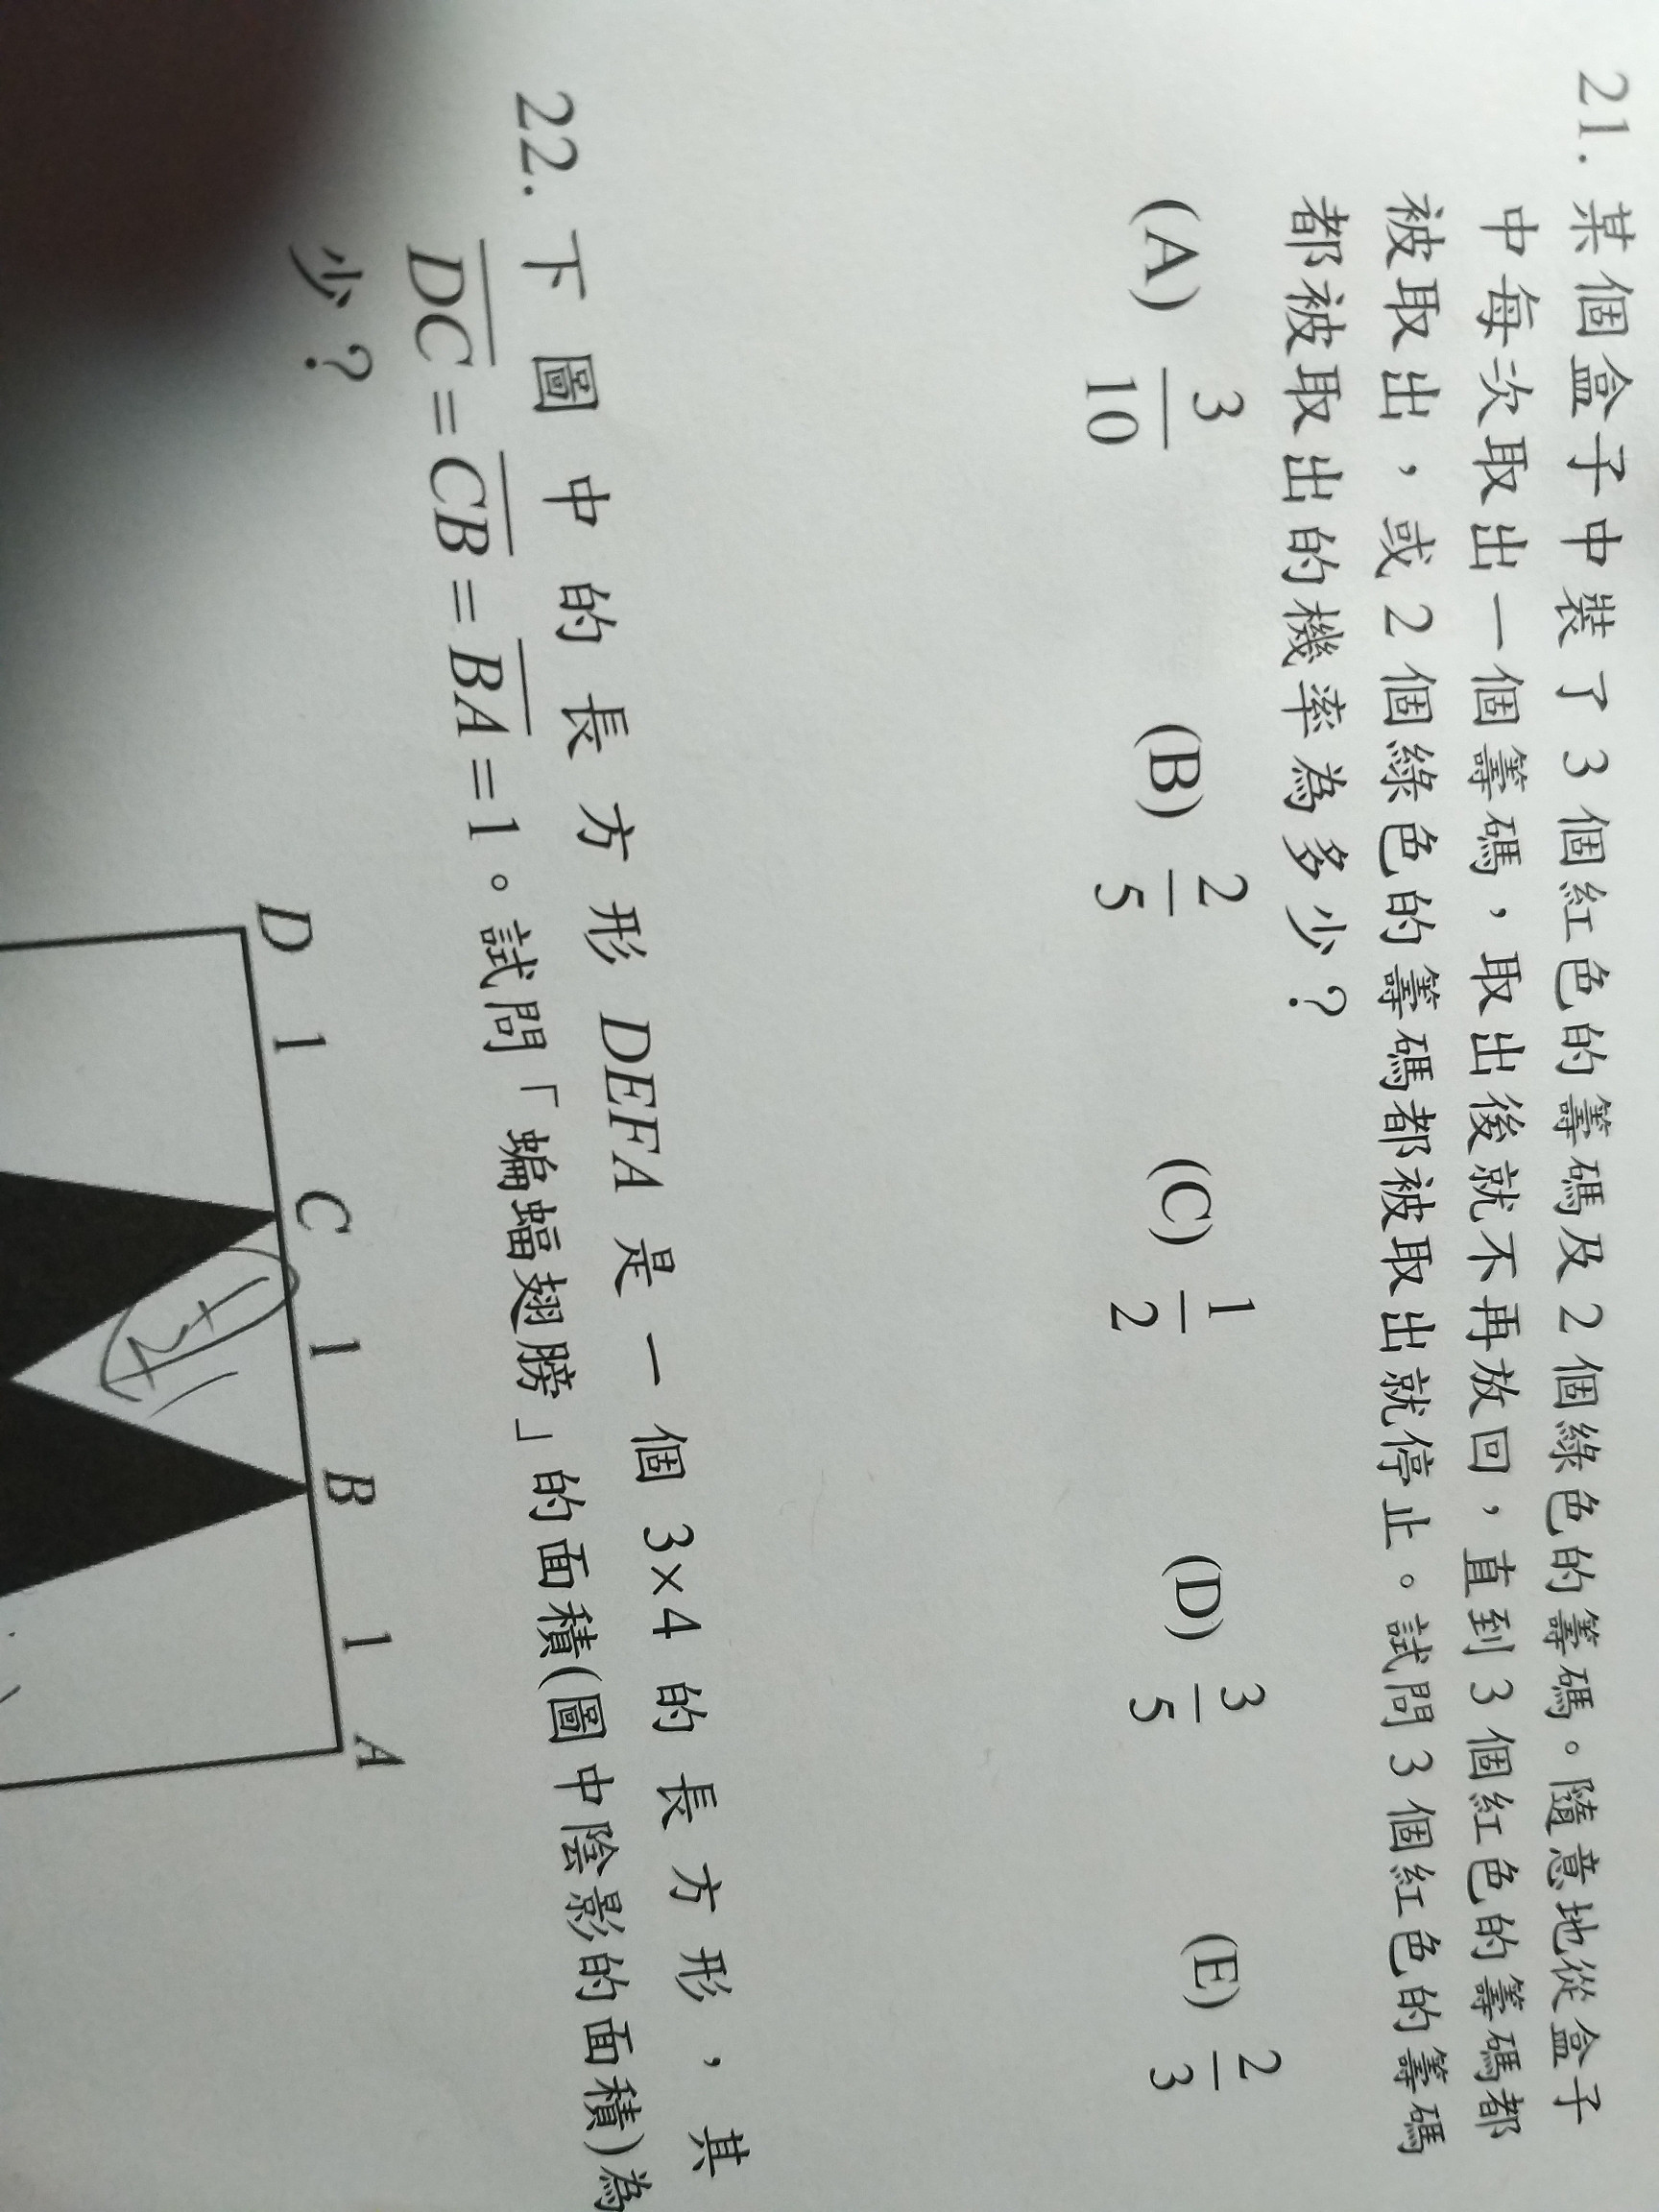 21. 某個盒子中裝了 3 個紅色的籌碼及 2 個綠色的籌碼。隨意地從盒子
中每次取出一個籌碼，取出後就不再放回，直到 3 個紅色的籌碼都
被取出，或 2 個綠色的籌碼都被取出就停止。試問 3 個紅色的籌碼
都被取出的機率為多少？
(A) 3/10 (B) 2/5 (C) 1/2 (D) 3/5 (E) 2/3
22. 下圖中的長方形 DEFA 是一個 3×4 的長方形，其
DC = CB = BA = 1。試問「蝙蝠翅膀」的面積(圖中陰影的面積)為
少？
D 1 C 1 B 1 A